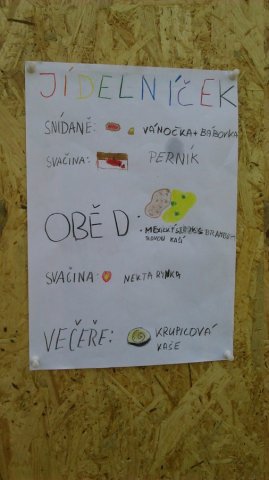 JÍDELNÍČEK
SNÍDANĚ: VÁNOČKA + BÁBOVKA
SVAČINA: PERNÍK
OBĚD:
S BRAMBO-
ROVOU KAŠÍ
SVAČINA: NEKTARINKA
VEČEŘE: KRUPICOVÁ
KAŠE